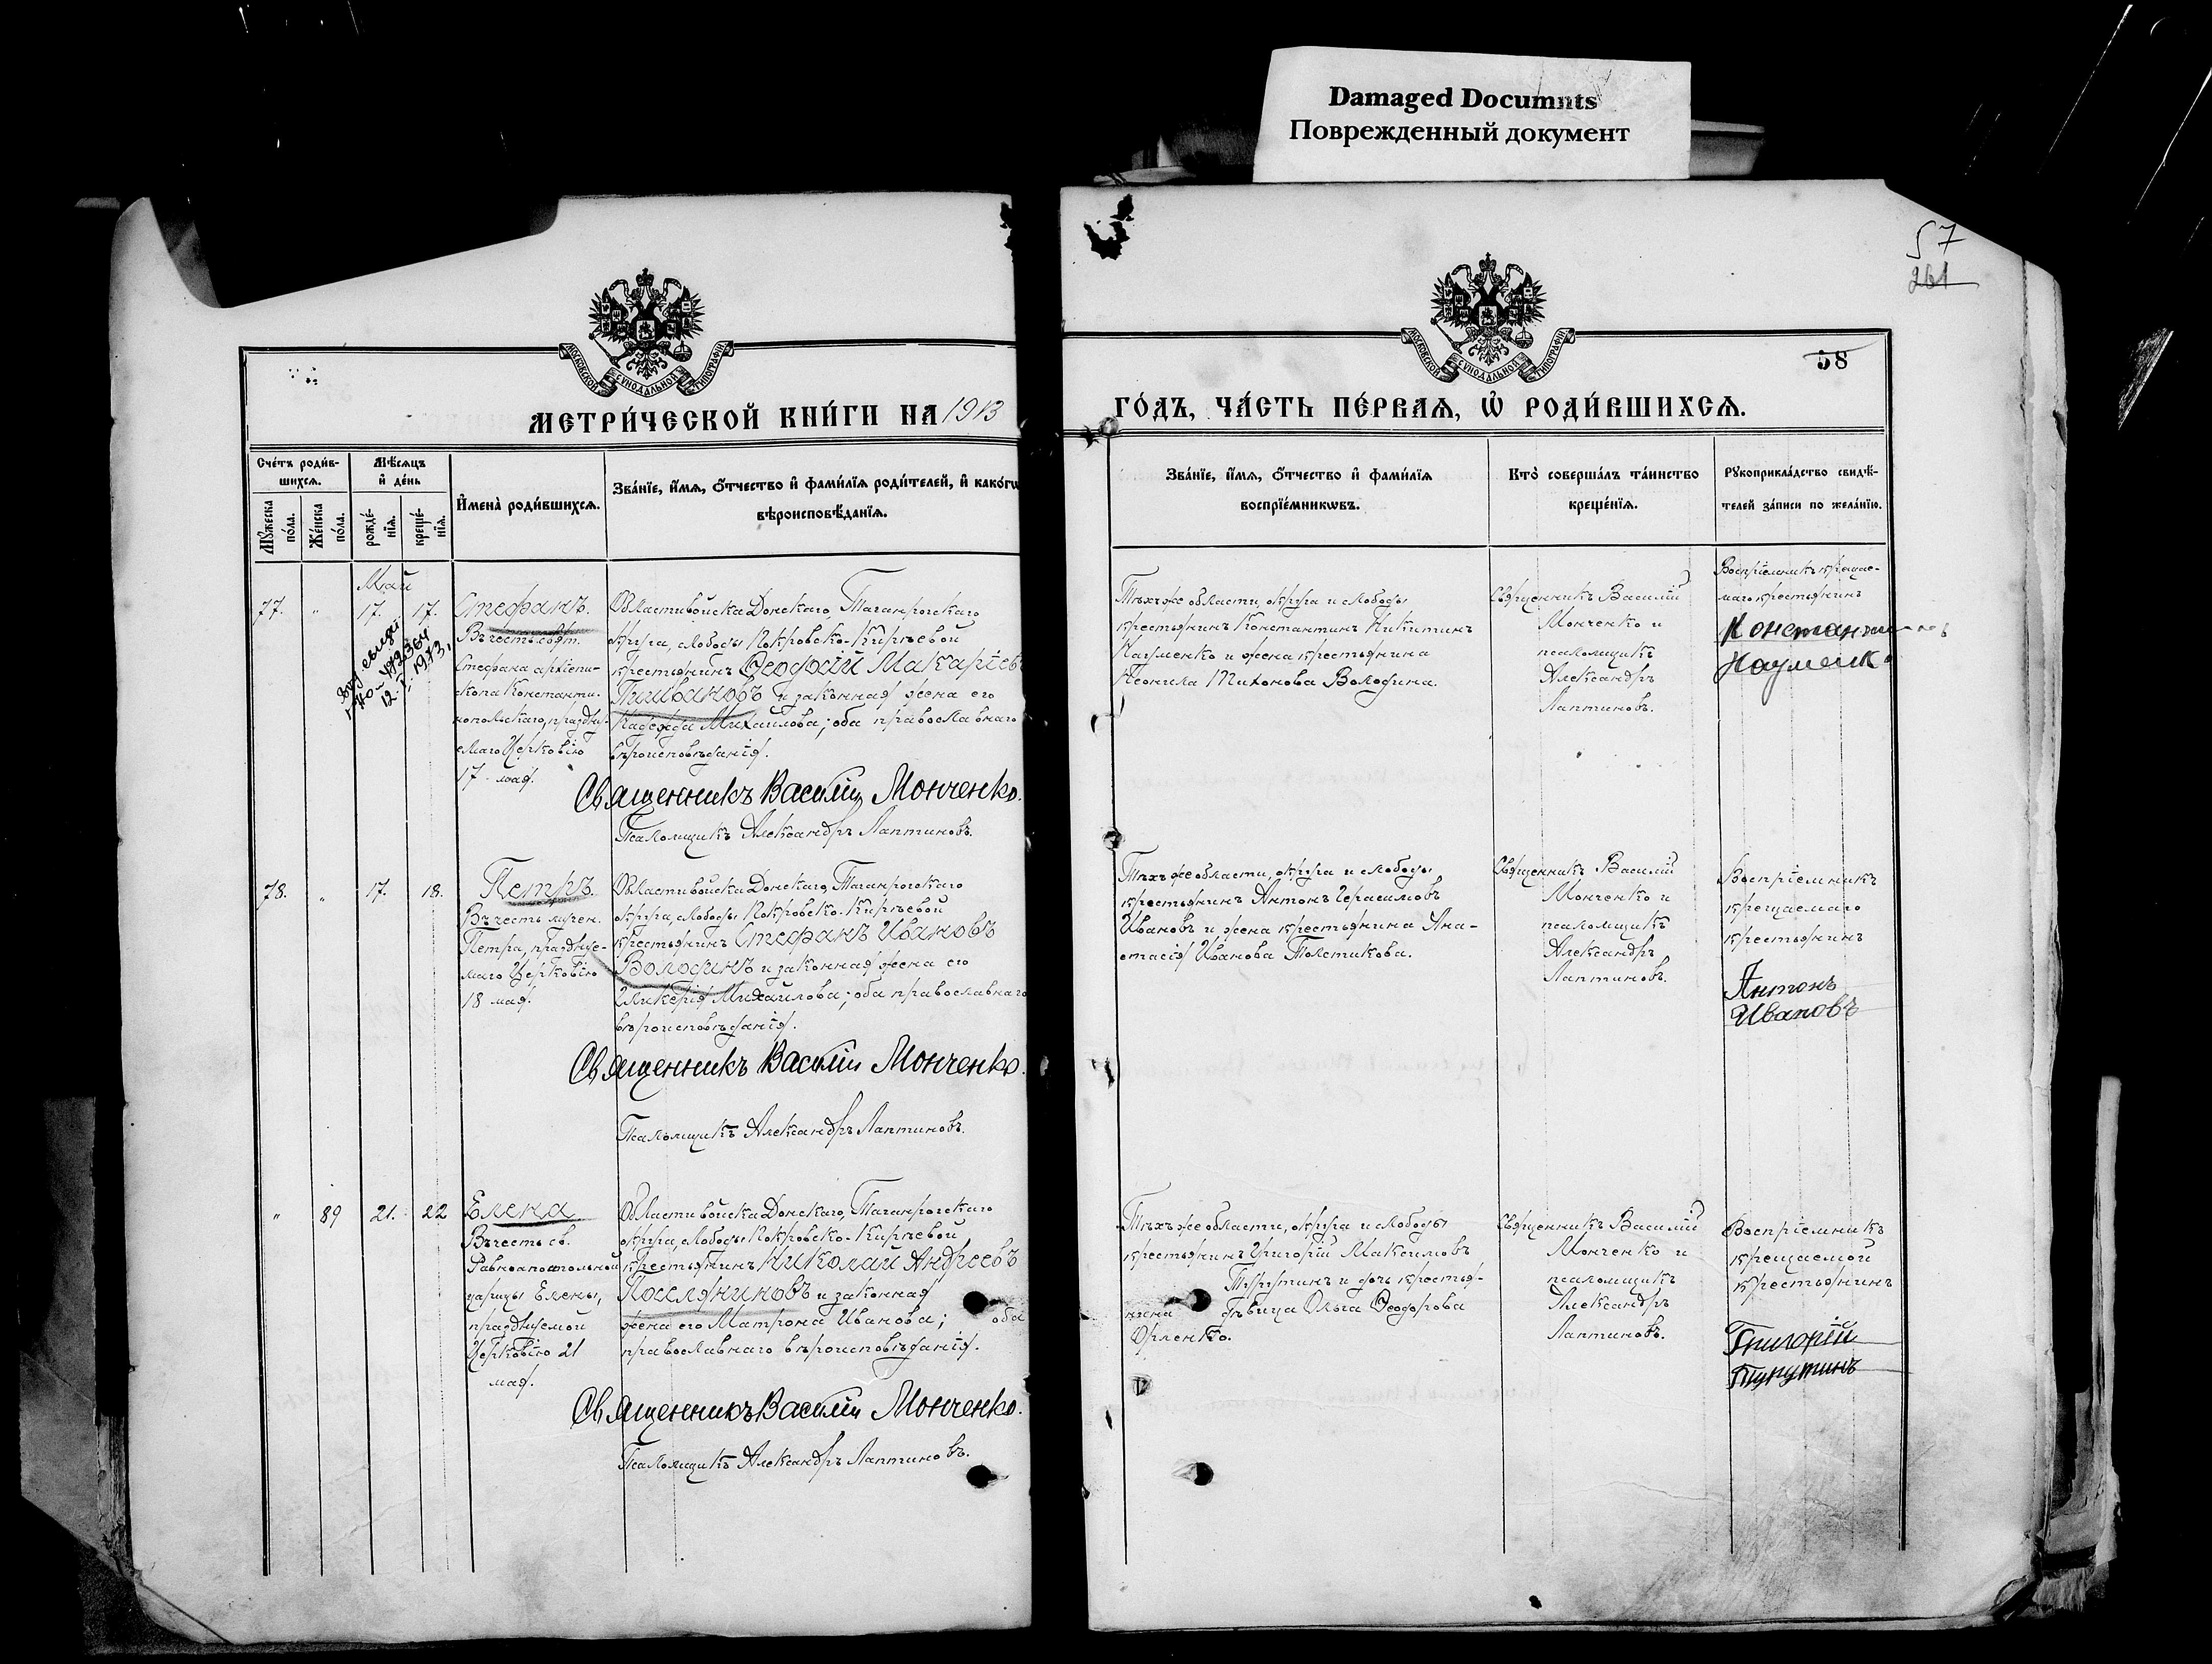 Damaged Documnts
Поврежденный документ
57
261
58
МОСКОВСКОЙ СУНОДАЛЬНОЙ ТИПОГРАФІИ
МОСКОВСКОЙ СУНОДАЛЬНОЙ ТИПОГРАФІИ
МЕТРИ́ЧЕСКОЙ КНИ́ГИ НА 1913
ГО́ДЪ, ЧА́СТЬ ПЕ́РВАѦ, Ѽ РОДИ́ВШИХСѦ.
Сче́тъ роди́в-
шихсѧ.
Мѣ́сѧцъ
и҆ де́нь
Мꙋ́жеска
по́ла.
Же́нска
по́ла.
рожде́-
нїѧ.
креще́-
нїѧ.
И҆мена̀ роди́вшихсѧ.
Зва́нїе, и҆́мѧ, ѻ҆́тчество и҆ фами́лїѧ роди́телей, и҆ како́гѡ
вѣроисповѣ́данїѧ.
Зва́нїе, и҆́мѧ, ѻ҆́тчество и҆ фами́лїѧ
воспрїе́мникѡвъ.
Кто̀ соверша́лъ та́инство
креще́нїѧ.
Рꙋкоприкла́дство свидѣ́-
телей за́писи по жела́нїю.
Май
77. " 17. 17.
12.I.1973
Стефанъ.
Въ честь свят.
Стефана архіепи-
скопа Константи-
нопольскаго, праздну-
емаго Церковію
17 мая.
Области войска Донскаго, Таганрогскаго
округа, слободы Покровско-Кирѣевой
крестьянинъ Ѳеофай Макаріевъ
и законная жена его
Надежда Михайлова; оба православнаго
вѣроисповѣданія.
Священникъ Василій Монченко.
Псаломщикъ Александръ Лаптиновъ.
Тѣхъ же области, округа и слободы
крестьянинъ Константинъ Никитинъ
Науменко и жена крестьянина
Неонила Тихонова Волошина.
Священникъ Василій
Монченко и
псаломщикъ
Александръ
Лаптиновъ.
Воспріемникъ крещае-
маго крестьянинъ
Константинъ
Науменко
78. " 17. 18.
Петръ.
Въ честь мучен.
Петра, праздуе-
маго Церковію
18 мая.
Области войска Донскаго, Таганрогскаго
округа, слободы Покровско-Кирѣевой
крестьянинъ Стефанъ Ивановъ
Волошинъ и законная жена его
Гликерія Михайлова; оба православнаго
вѣроисповѣданія.
Священникъ Василій Монченко.
Псаломщикъ Александръ Лаптиновъ.
Тѣхъ же области, округа и слободы
крестьянинъ Антонъ Герасимовъ
Ивановъ и жена крестьянина Ана-
стасія Иванова Толстикова.
Священникъ Василій
Монченко и
псаломщикъ
Александръ
Лаптиновъ.
Воспріемникъ
крещаемаго
крестьянинъ
Антонъ
Ивановъ
" 89 21. 22
Елена
Въ честь св.
Равноапостольной
царицы Елены,
празднуемой
Церковію 21
мая.
Области войска Донскаго, Таганрогскаго
округа, слободы Покровско-Кирѣевой
крестьянинъ Николай Андреевъ
и законная
жена его Матрона Иванова; оба
православнаго вѣроисповѣданія.
Священникъ Василій Монченко.
Псаломщикъ Александръ Лаптиновъ.
Тѣхъ же области, округа и слободы
крестьянинъ Григорій Максимовъ
Турутинъ и дочь крестья-
нина дѣвица Ольга Ѳеодорова
Священникъ Василій
Монченко и
псаломщикъ
Александръ
Лаптиновъ.
Воспріемникъ
крещаемой
крестьянинъ
Григорій
Турутинъ